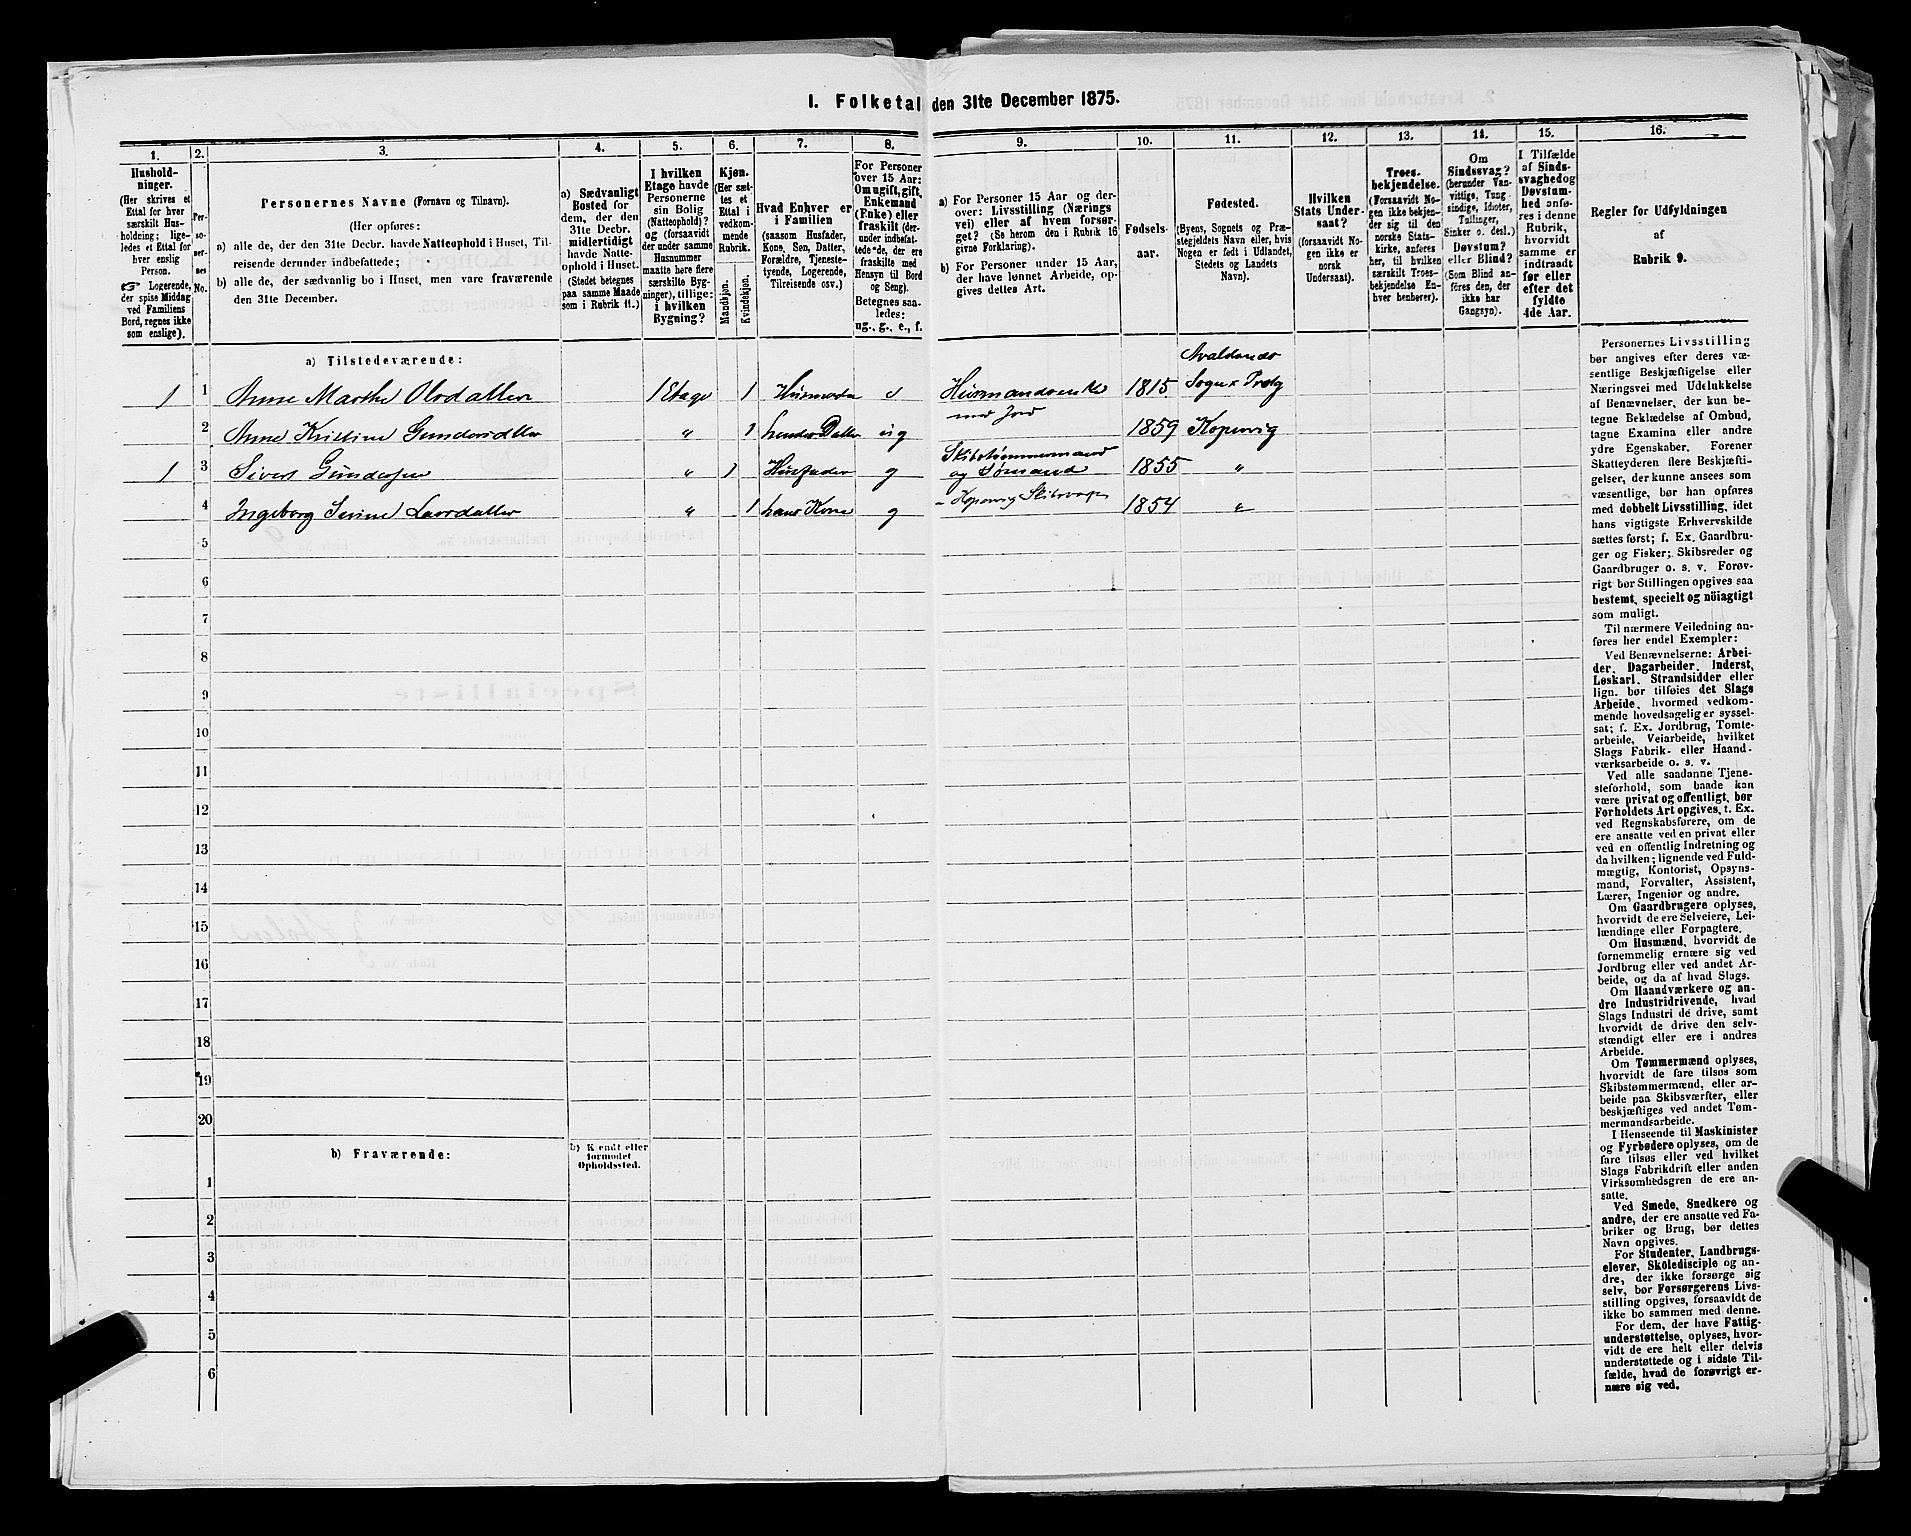 I. Folketal den 31te December 1875.
1. 2. 3. 4. 5. 6. 7. 8. 9. 10. 11. 12. 13. 14. 15. 16.
Hushold-
ninger.
(Her skrives et
Ettal for hver
særskilt Hus-
holdning; lige-
ledes et Ettal for
hver enslig
Person.
Logerende,
der spise Middag
ved Familiens
Bord, regnes ikke
som enslige).
Per-
so-
ner-
nes
No.
Personernes Navne (Fornavn og Tilnavn).
(Her opføres:
a) alle de, der den 31te Decbr. havde Natteophold i Huset, Til-
reisende derunder indbefattede;
b) alle de, der sædvanlig bo i Huset, men vare fraværende
den 31te December.
a) Sædvanligt
Bosted for
dem, der den
31te Decbr.
midlertidigt
havde Natte-
ophold i Huset.
(Stedet betegnes
paa samme Maade
som i Rubrik 11.)
I hvilken
Etage havde
Personerne
sin Bolig
(Natteophold)?
og (forsaavidt
der under samme
Husnummer
maatte høre flere
særskilte Byg-
ninger), tillige:
i hvilken
Bygning?
Kjøn.
(Her sæt-
tes et
Ettal i
vedkom-
mende
Rubrik.
Mandkjøn.
Kvindekjøn.
Hvad Enhver er
i Familien
(saasom Husfader,
Kone, Søn, Datter,
Forældre, Tjeneste-
tyende, Logerende,
Tilreisende osv.)
For Personer
over 15 Aar:
Om ugift, gift,
Enkemand
(Enke) eller
fraskilt (der-
under indbefat-
tede de, der ere
fraskilte med
Hensyn til Bord
og Seng).
Betegnes saa-
ledes:
ug., g., e., f.
a) For Personer 15 Aar og der-
over: Livsstilling (Nærings
vei) eller af hvem forsør-
get? (Se herom den i Rubrik 16
givne Forklaring).
b) For Personer under 15 Aar,
der have lønnet Arbeide, op-
gives dettes Art.
Fødsels-
aar.
Fødested.
(Byens, Sognets og Præ-
stegjeldets Navn eller, hvis
Nogen er født i Udlandet,
Stedets og Landets
Navn).
Hvilken
Stats Under-
saat?
(forsaavidt No-
gen ikke er
norsk
Undersaat).
Troes-
bekjendelse.
(Forsaavidt No-
gen ikke bekjen-
der sig til den
norske Stats-
kirke, anføres
her, til hvilken
særskilt Troes-
bekjendelse En-
hver henhører).
Om
Sindssvag?
(herunder Van-
vittige, Tung
sindige, Idioter,
Tullinger,
Sinker o. desl.)
Døvstum?
eller Blind?
(Som Blind an-
føres den, der
ikke har
Gangsyn).
I Tilfælde
af Sinds-
svaghed og
Døvstum-
hed anfø-
res i denne
Rubrik,
hvorvidt
samme er
indtraadt
før eller
efter det
fyldte
4de Aar.
Regler for Udfyldningen
af
Rubrik 9.
a) Tilstedeværende:
Avaldsnes
1 1 Anne Marthe Olsdatter 1 Etage 1 Husmoder e Husmandsenke 1815 Sogn x Prstg
med Jord
2 Anne Kristine Gundersdtter " 1 hendes Datter ug 1859 Kopervig
1 3 Sivert Gundersen " 1 Husfader g Skibstømmermand 1855 "
og Sømand
4 Ingeborg Serine Larsdatter " 1 hans Kone g Kopervig Skibsværft 1854 "
5
6
7
8
9
10
11
12
13
14
15
16
17
18
19
20
b) Fraværende:
b) Kjendt eller
formodet
Opholdssted.
1
2
3
4
5
6
Personernes Livsstilling
bør angives efter deres væ-
sentlige Beskjæftigelse eller
Næringsvei med Udelukkelse
af Benævnelser, der kun be-
tegne Beklædelse af Ombud,
tagne Examina eller andre
ydre Egenskaber. Forener
Skatteyderen flere Beskjæfti-
gelser, der kunne ansees som
væsentlige, bør han opføres
med dobbelt Livsstilling, idet
hans vigtigste Erhvervskilde
sættes først; f. Ex. Gaardbru-
ger og Fisker; Skibsreder og
Gaardbruger o. s. v. Forøv-
rigt bør Stillingen opgives saa
bestemt, specielt og nöiagtigt
som muligt.
Til nærmere Veiledning an-
føres her endel Exempler:
Ved Benævnelserne: Arbei-
der, Dagarbeider, Inderst,
Løskarl, Strandsidder eller
lign. bør tilføies det Slags
Arbeide, hvormed vedkom-
mende hovedsagelig er syssel-
sat; f. Ex. Jordbrug, Tomte-
arbeide, Veiarbeide, hvilket
Slags Fabrik- eller Haand-
værksarbeide o. s. v.
Ved alle saadanne Tjene-
steforhold, som baade kan
være privat og offentligt, bør
Forholdets Art opgives, t. Ex.
ved Regnskabsførere, om de
ere ansatte ved en privat eller
ved en offentlig Indretning og
da hvilken; lignende ved Fuld-
mægtig, Kontorist, Opsyns-
mand, Forvalter, Assistent,
Lærer, Ingeniør og andre.
Om Gaardbrugere oplyses,
hvorvidt de ere Selveiere, Lei-
lændinge eller Forpagtere.
Om Husmænd, hvorvidt de
fornemmelig ernære sig ved
Jordbrug eller ved andet Ar-
beide, og da af hvad Slags.
Om Haandværkere og an-
dre Industridrivende, hvad
Slags Industri de drive, samt
hvorvidt de drive den selv-
stændigt eller ere i andres
Arbeide.
Om Tømmermænd oplyses,
hvorvidt de fare tilsøs som
Skibstømmermænd, eller ar-
beide paa Skibsværfter, eller
beskjæftiges ved andet Tøm-
mermandsarbeide.
I Henseende til Maskinister
og Fyrbødere oplyses, om de
fare tilsøs eller ved hvilket
Slags Fabrikdrift eller anden
Virksomhedsgren de ere an-
satte.
Ved Smede, Snedkere og
andre, der ere ansatte ved Fa-
briker og Brug, bør dettes
Navn opgives.
For Studenter, Landbrugs-
elever, Skoledisciple og an-
dre, der ikke forsørge sig
selv, bør Forsørgerens Livs-
stilling opgives, forsaavidt de
ikke bo sammen med denne.
For dem, der have Fattig-
understøttelse, oplyses, hvor-
vidt de ere helt eller delvis
understøttede og i sidste Til-
fælde, hvad de forøvrigt er-
nære sig ved.